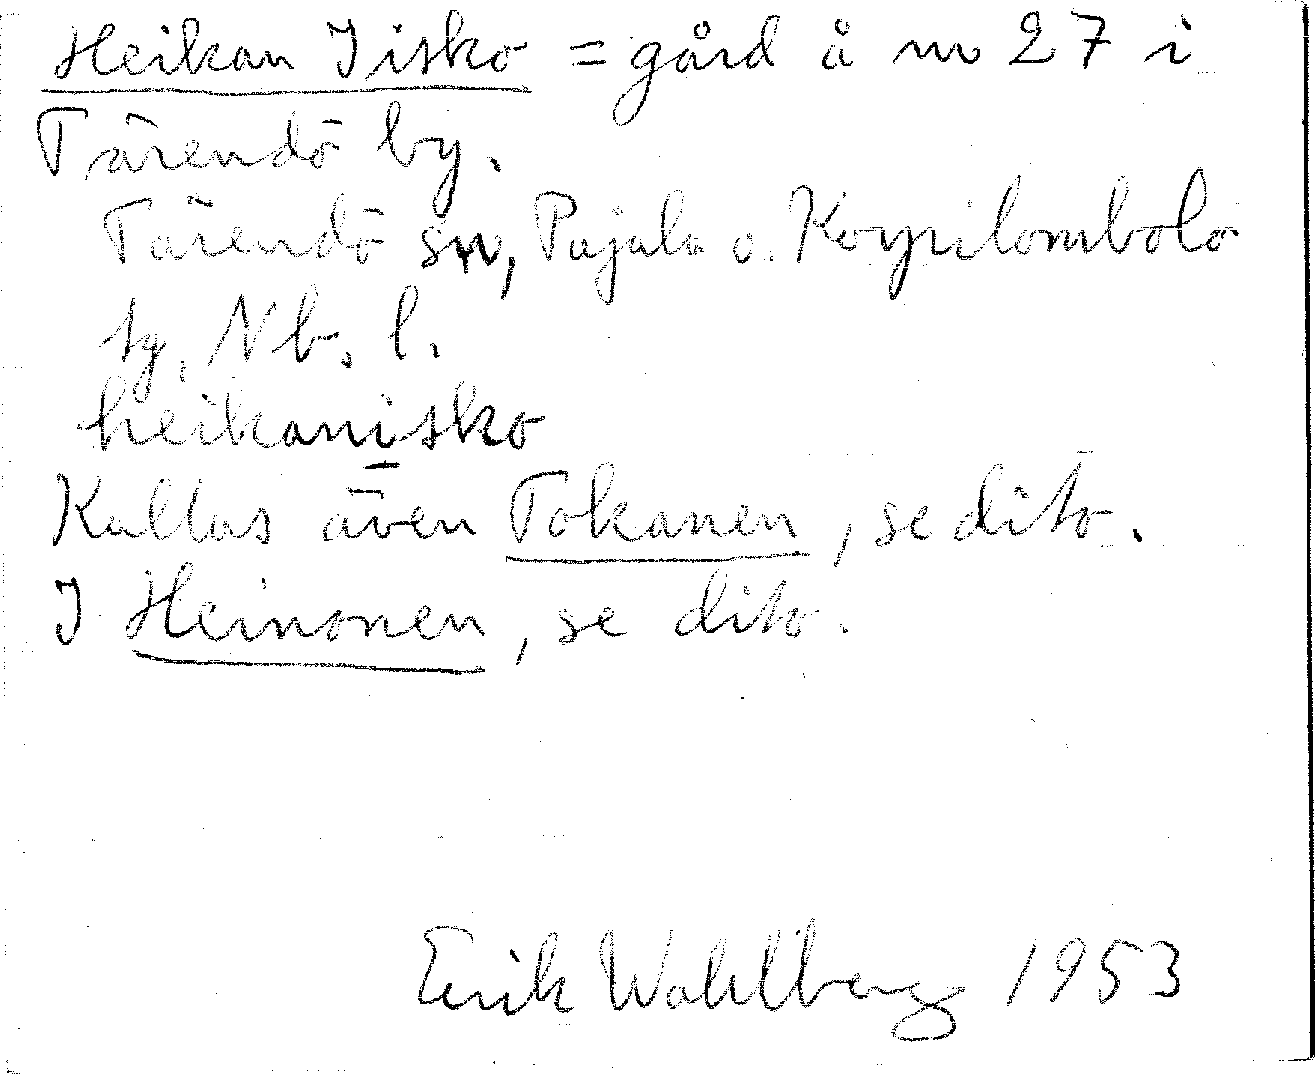 Heikan Iisko = gård å nr 27 i
Tärendö by.
Tärendö sn, Pajala o. Korpilombolo
tg, Nb. l.
heikanīsko
Kallas även Tokanen, se dito.
I Heinonen, se dito.
Erik Wahlberg 1953